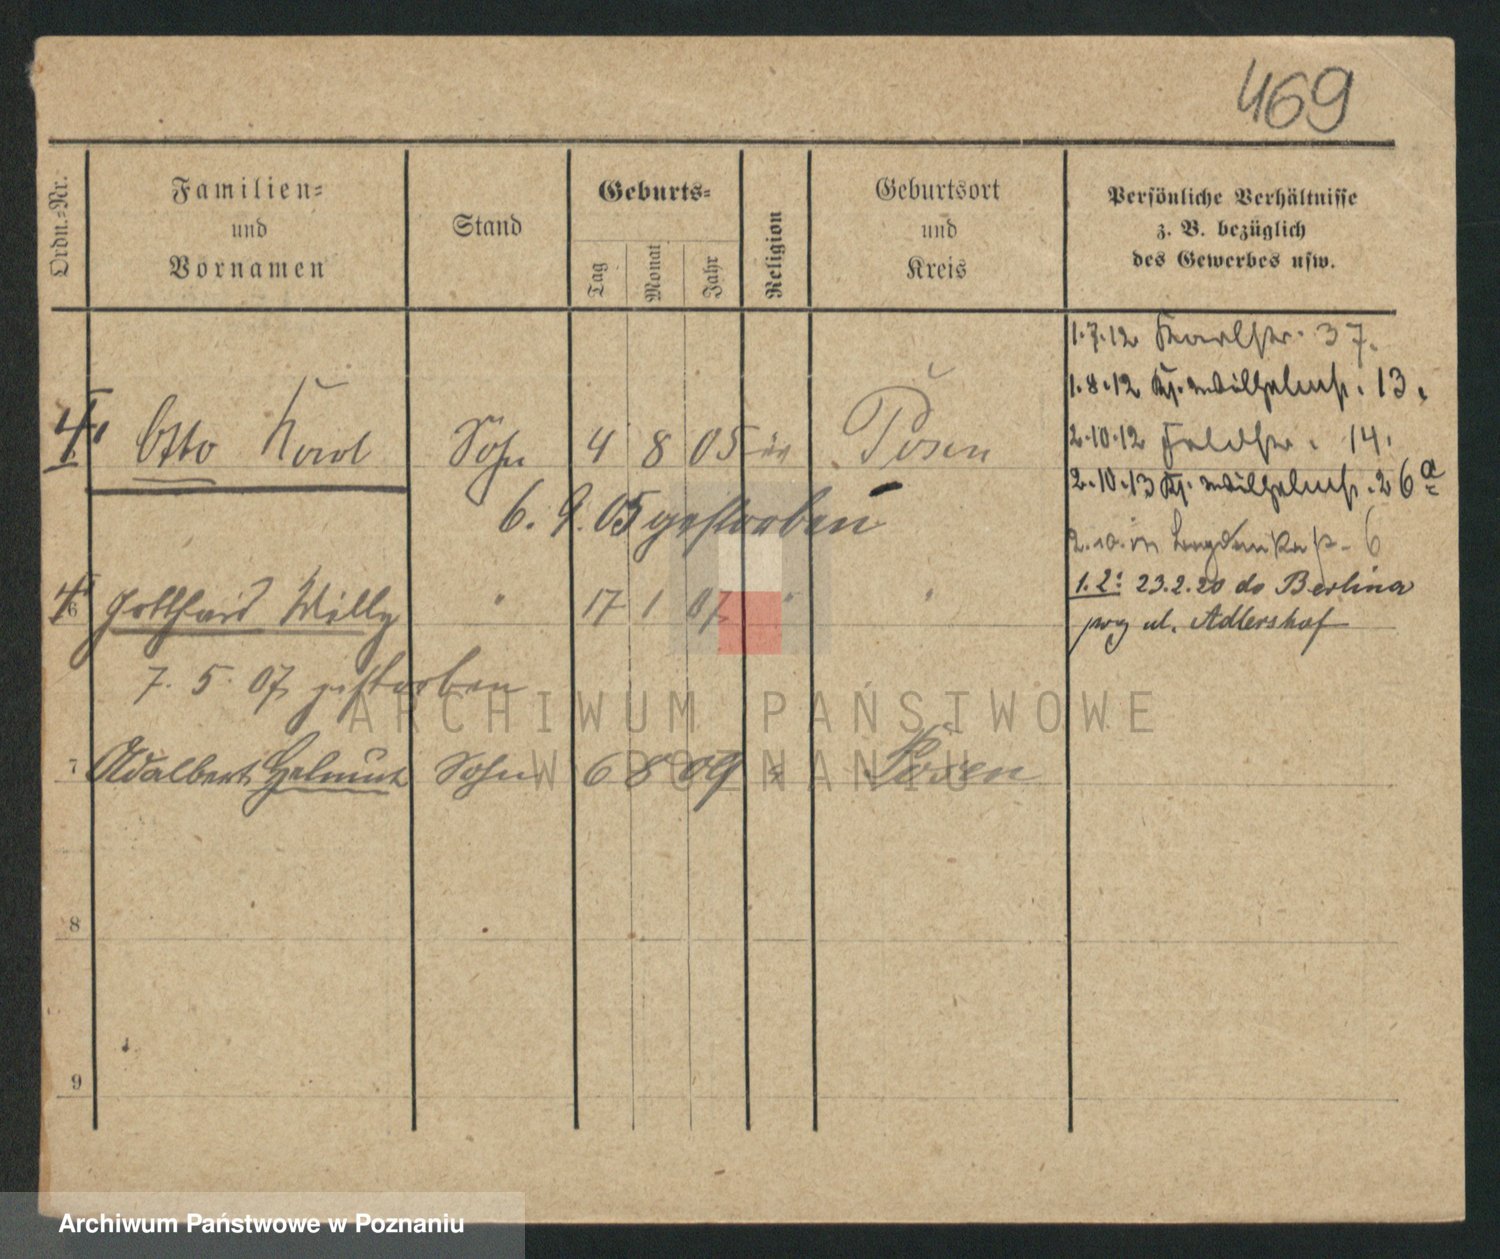 469
Ordn.-Nr.
Familien-
und
Vornamen
Stand
Geburts-
Tag
Monat
Jahr
Religion
Geburtsort
und
Kreis
Persönliche Verhältnisse
z. B. bezüglich
des Gewerbes usw.
1.7.12 Karlstr. 37.
1.8.12 Kj. Wilhelmst. 13.
Otto Karl Sohn 4 8 05 Posen
2.10.12 Feldstr. 14.
2.10.13 Kj. Wilhelmst. 26a
6. 9. 05 gestorben
6
1.2: 23.2.20 do Berlina
6 Gotthard Willy " 17 1 07 " "
ul. Adlershof
7. 5. 07 gestorben
7 Adalbert Helmut Sohn 6 8 09 Posen
8
9
ARCHIWUM PAŃSTWOWE
W POZNANIU
Archiwum Państwowe w Poznaniu